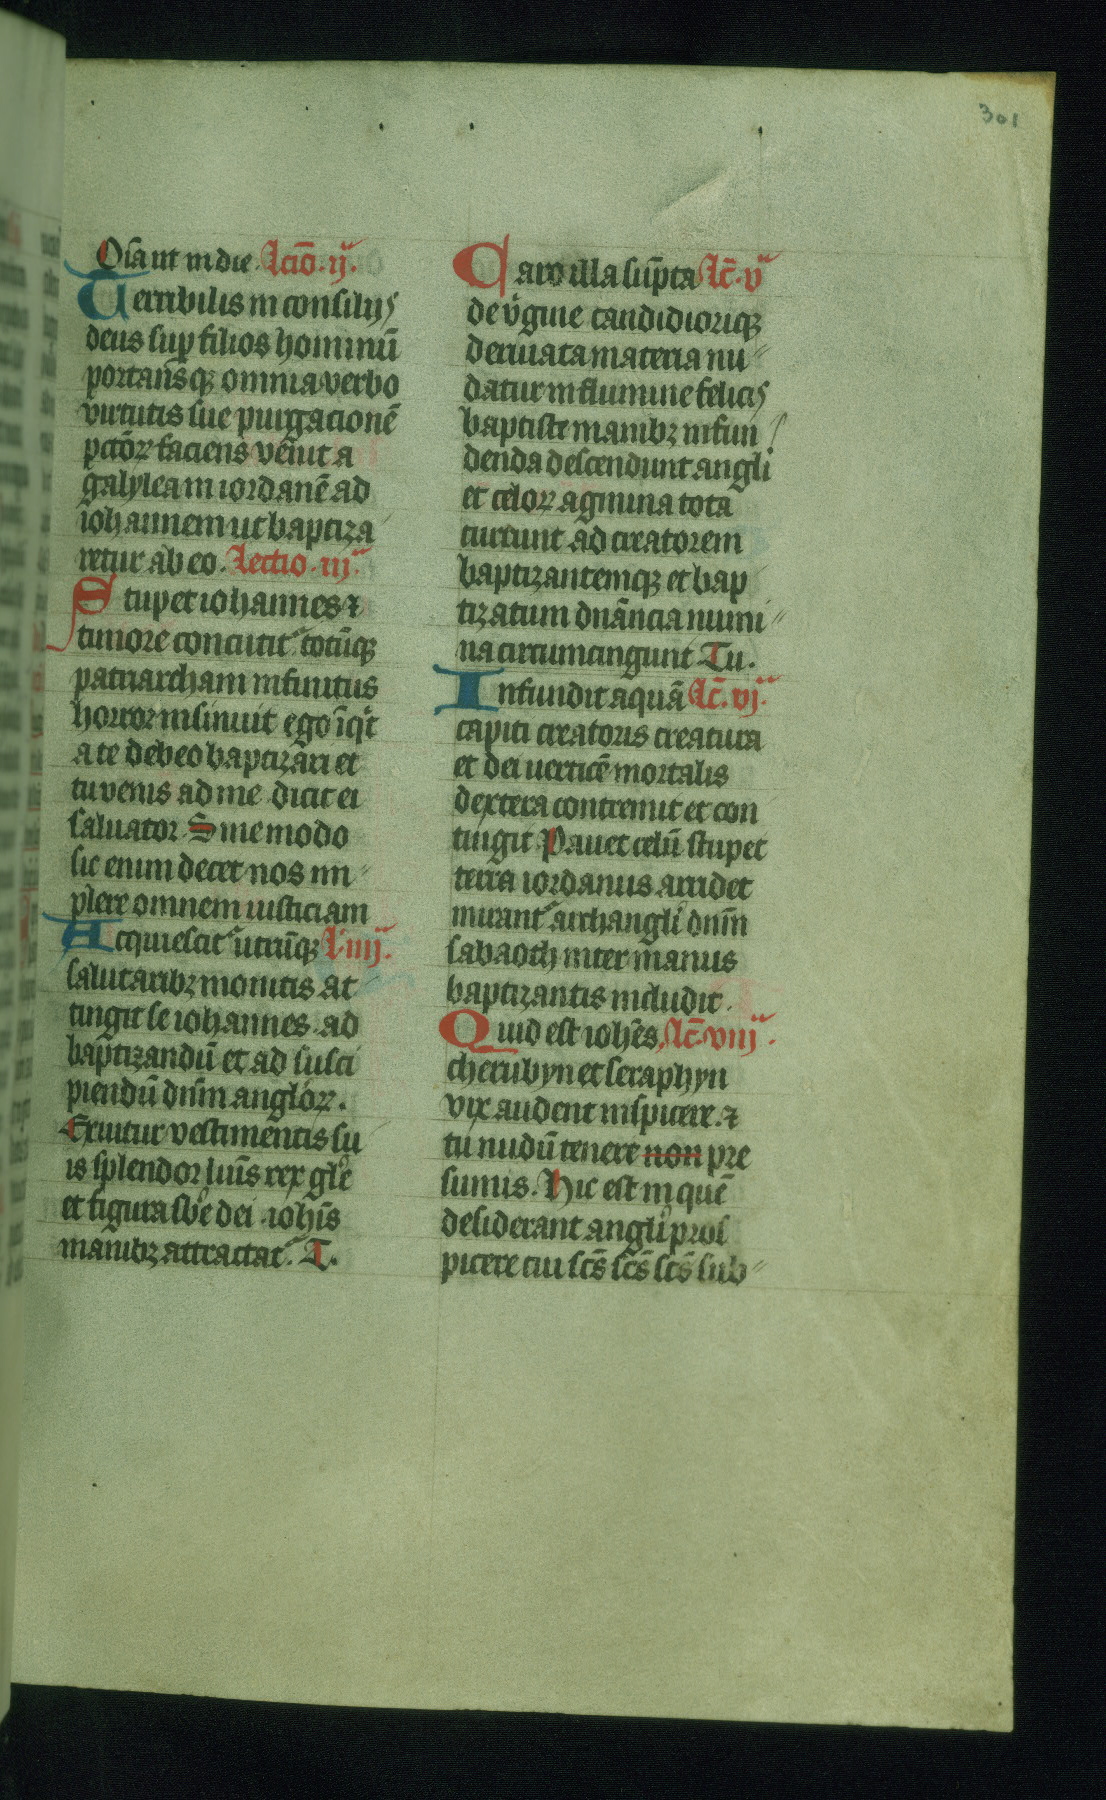 301
Oia ut in die. Lcio. ij.
Terribilis in consilijs
deus sup filios hominū
portansq; omnia verbo
virtutis sue purgacionē
pctōꝝ faciens vēnit a
galylea in iordanē ad
iohannem ut baptiza
retur ab eo. Lectio. iij.
Stupet iohannes ⁊
timore concutit᷑ totūq;
patriarcham infinitus
horror insinuit ego īq̇t
a te debeo baptizari et
tu venis ad me dicit ei
saluator. Sine modo
sic enim decet nos im
plere omnem iusticiam
Acquiescit᷑ utrūq; L. iiij.
salutaribꝫ monitis at
tingit se iohannes ad
baptizandū et ad susci
piendū dnm angloꝝ.
Exuitur vestimentis su
is splendor luīs rex glē
et figura sbē dei iohīs
manibꝫ attractat᷑. T.
Caro illa sūpta Lc̄. v
de v̇gine candidioriq;
deriuata materia nu
datur in flumine felicis
baptiste manibꝫ infun
denda descendunt angli
et celoꝝ agmina tota
currunt ad creatorem
baptizantemq; et bap
tizatum dnāncia numi
na circumcingunt Tu.
Infundit aquā Lc̄. vj.
capiti creatoris creatura
et dei uerticē mortalis
dextera contremit et con
tingit Pauet celū stupet
terra iordanus arridet
mirant᷑ archangli dnm̄
sabaoth inter manus
baptizantis includit.
Quid est iohēs, Lc̄. viij.
cherubyn et seraphyn
vix audent inspicere. ⁊
tu nudū tenere non pre
sumis. Hic est in quē
desiderant angli pros
picere cui scs̄ scs̄ scs̄ sub